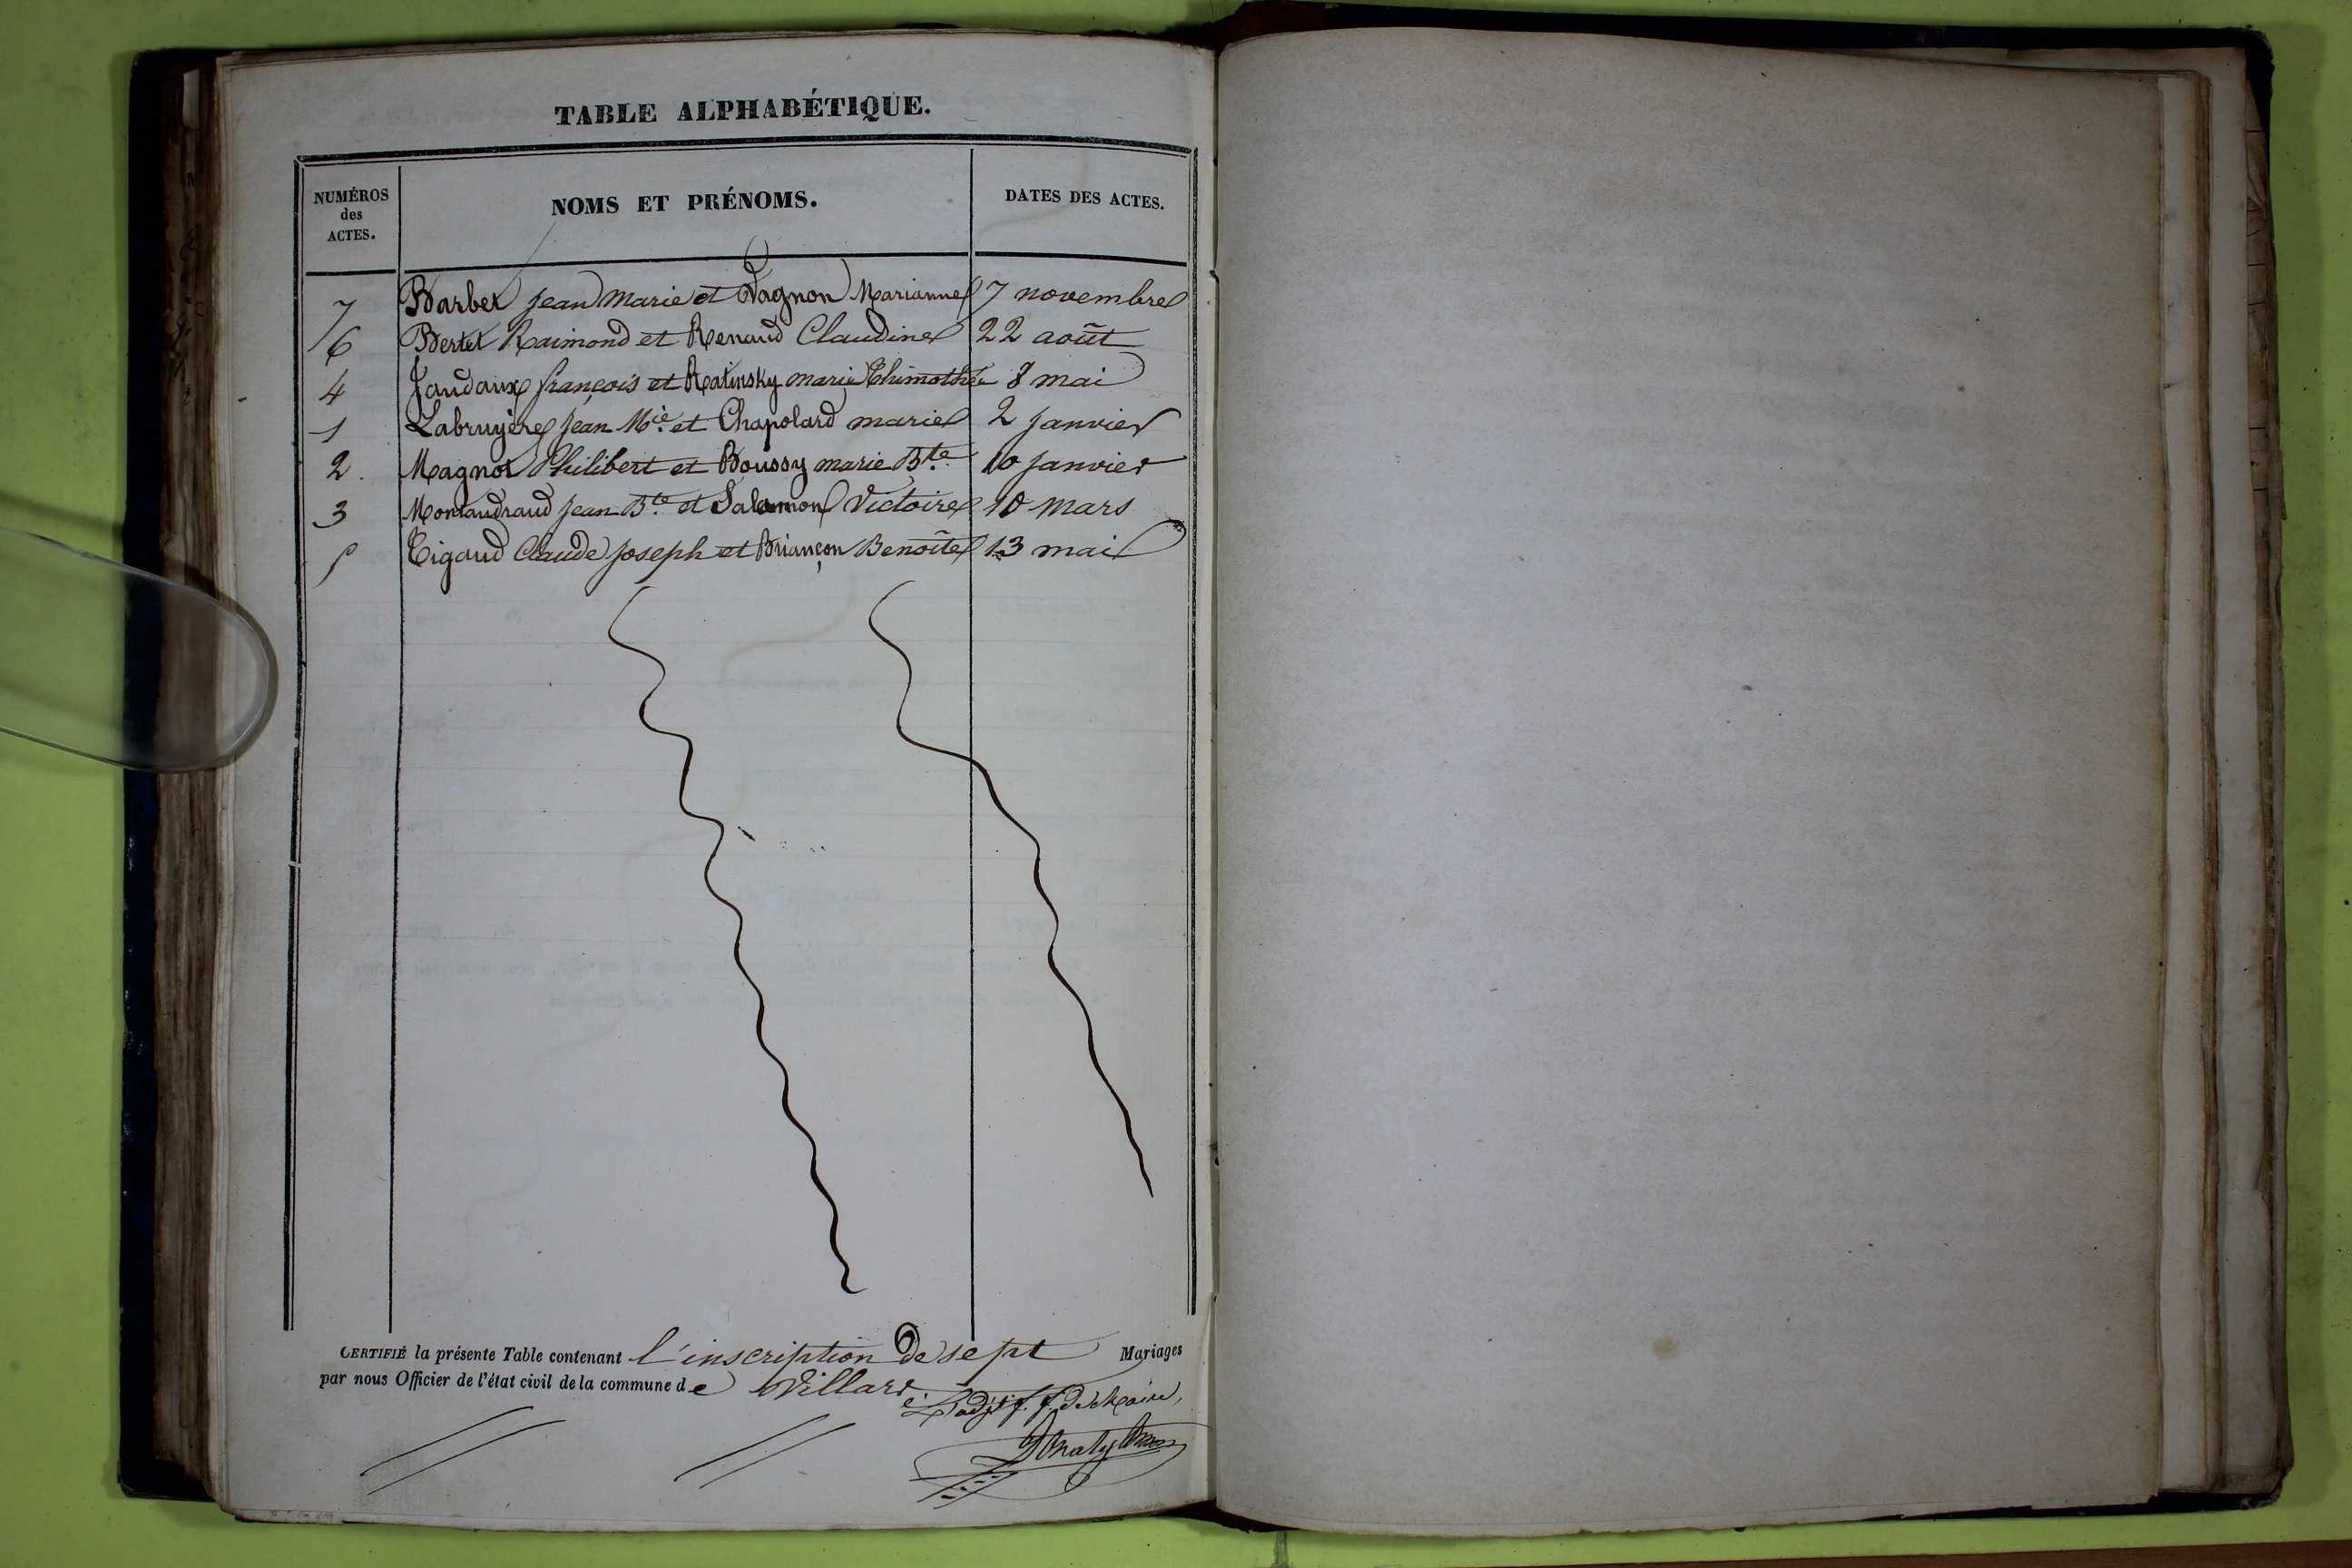 TABLE ALPHABÉTIQUE.
NUMÉROS des ACTES. NOMS ET PRÉNOMS. DATES DES ACTES.
7 Barbet Jean Marie et Vagnon Marianne 7 novembre
6 Bertet Raimond et Renaud Claudine 22 août
4 Jandaux françois et Ratinsky marie Thimothée 8 mai
1 Labruyère Jean Mie. et Chapolard marie 2 Janvier
2. Magnot Philibert et Boussy marie Bte. 10 Janvier
3 Montaudraud Jean Bte. et Salomon Victoire 10 Mars
5 Tigaud Claude Joseph et Briançon Benoîte 13 mai
CERTIFIÉ la présente Table contenant l'inscription de sept Mariages
par nous Officier de l'état civil de la commune de Villars
L'adjt. f. f. de Maire,